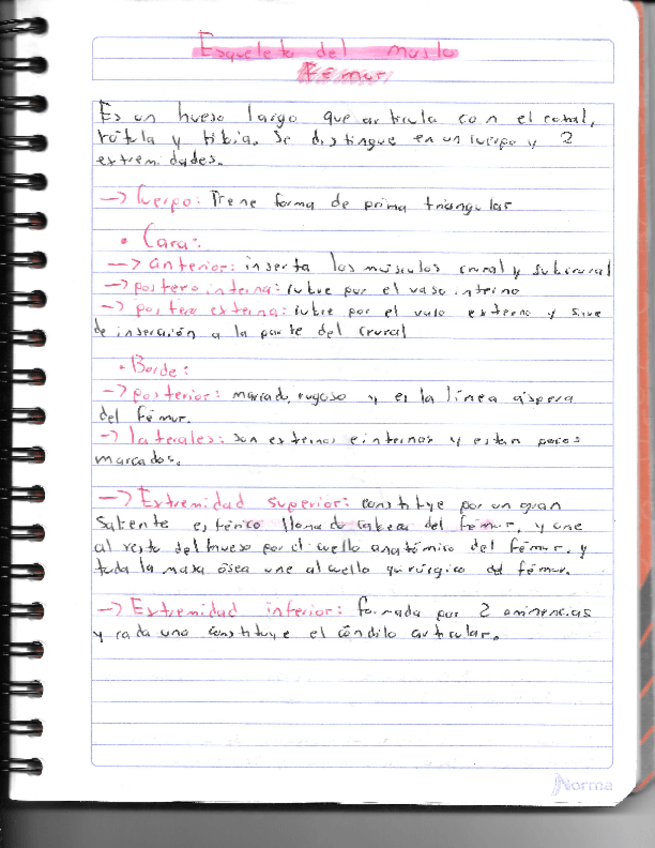 Esqueleto del muslo
Fémur
Es un hueso largo que articula con el coxal,
rótula y tibia. Se distingue en un cuerpo y 2
extremidades.
-> Cuerpo: Tiene forma de prima triangular
• Cara:
-> anterior: inserta los músculos crural y subcrural
-> postero interna: cubre por el vaso interno
-> postero externa: cubre por el vaso externo y sirve
de inserción a la parte del crural
• Borde:
-> posterior: marcado, rugoso y es la línea áspera
del fémur.
-> laterales: son externos e internos y estan pocos
marcados.
-> Extremidad superior: constituye por un gran
saliente esférico llamado cabeza del fémur, y une
al resto del hueso por el cuello anatómico del fémur, y
toda la masa ósea une al cuello quirúrgico del fémur.
-> Extremidad inferior: formada por 2 eminencias
y cada una constituye el cóndilo articular.
Norma